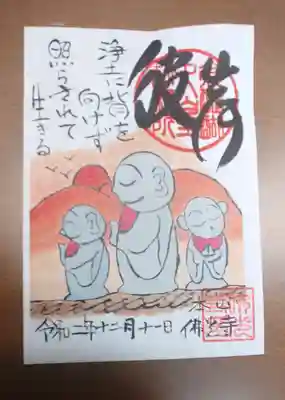 彼岸
浄土に背を
向けず
照らされて
生きる
本山
佛光寺
令和二年十二月十一日